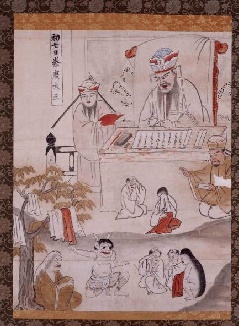 初七日秦廣大王